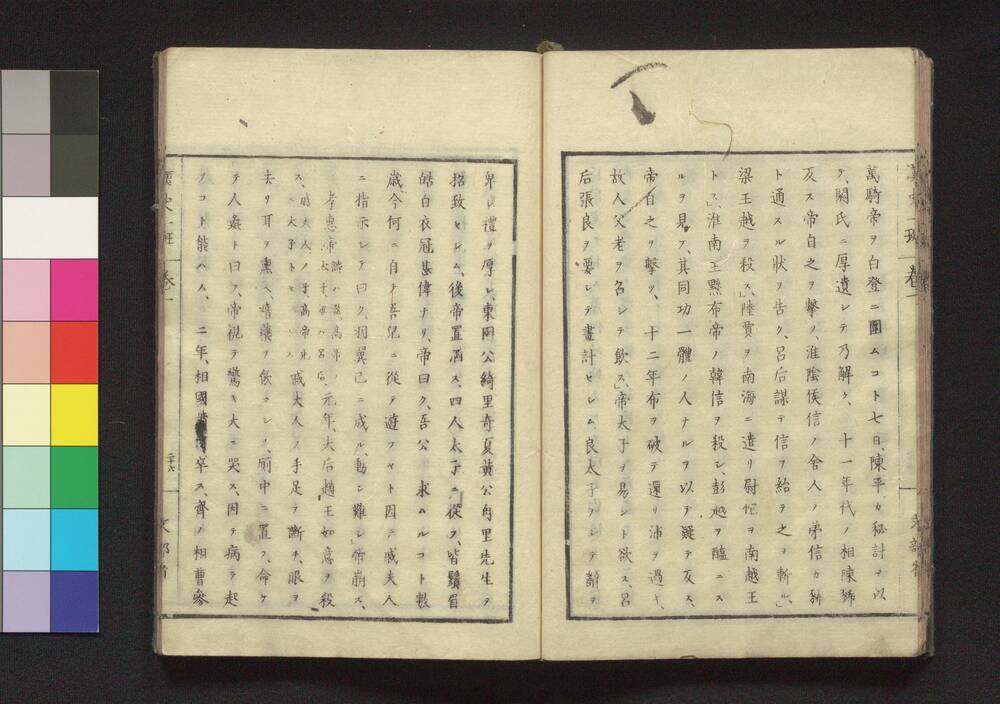 萬騎帝ヲ白登ニ圍ムコト七日、陳平カ秘計ヲ以
テ、閼氏ニ厚遺シテ乃解ク、 十一年代ノ相陳豨
反ス帝自之ヲ撃ツ、淮陰侯信ノ舍人ノ弟信カ豨
ト通スル状ヲ告ク、呂后謀テ信ヲ紿テ之ヲ斬ル、
梁王越ヲ殺ス、陸賈ヲ南海ニ遣リ尉佗ヲ南越王
トス、淮南王黥布帝ノ韓信ヲ殺シ、彭越ヲ醢ニス
ルヲ見テ、其同功一體ノ人ナルヲ以テ疑テ反ス、
帝自之ヲ撃ツ、 十二年布ヲ破テ還リ沛ヲ過ヤ、
故人父老ヲ召シテ飲ス、帝太子ヲ易ント欲ス、呂
后張良ヲ要シテ畫計セシム、良太子ヲシテ辭ヲ
卑シ禮ヲ厚シ、東園公綺里奇夏黄公甪里先生ヲ
招致セシム、後帝置酒ス、四人太子ニ從フ、皆鬚眉
皓白衣冠甚偉ナリ、帝曰ク、吾公ヲ求ムルコト數
歳今何ニ自テ吾兒ニ從テ遊フヤト因テ戚夫人
ニ指示シテ曰ク、羽翼已ニ成ル、動シ難シ、帝崩ス、
孝惠帝 元年、太后趙王如意ヲ殺
ス、戚夫人ノ手足ヲ斷チ、眼ヲ
去リ耳ヲ熏ヘ瘖藥ヲ飲マシメ、廁中ニ置ク、命ケ
テ人彘ト曰フ、帝視テ驚キ大ニ哭ス、因テ病テ起
フコト能ハス、 二年、相國蕭何卒ス、齊ノ相曹參
巻一
二十六
文部省
巻一